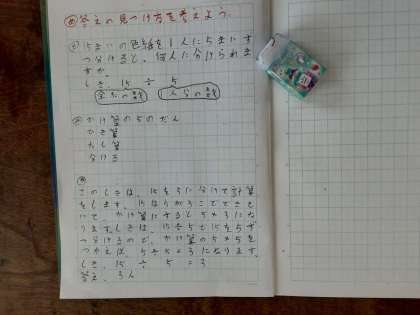 め 答えの見つけ方を考えよう。
15まいの色紙を1人に5まいず
つ分けると、何人に分けられま
すか。
しき、15 ÷ 5
全部の数 1人分の数
かけ算の5のだん
ひき算
たし算
分ける
このしきは、15を5に分けて計算
をします。15は
いて、かけ算にすると5×3にな
ります。しきは、15÷5で15を5ず
つ分けるので、かけ算の5×5を
つかえば、5÷5=3になります。
しき、15 ÷ 5 = 3
答え、3人